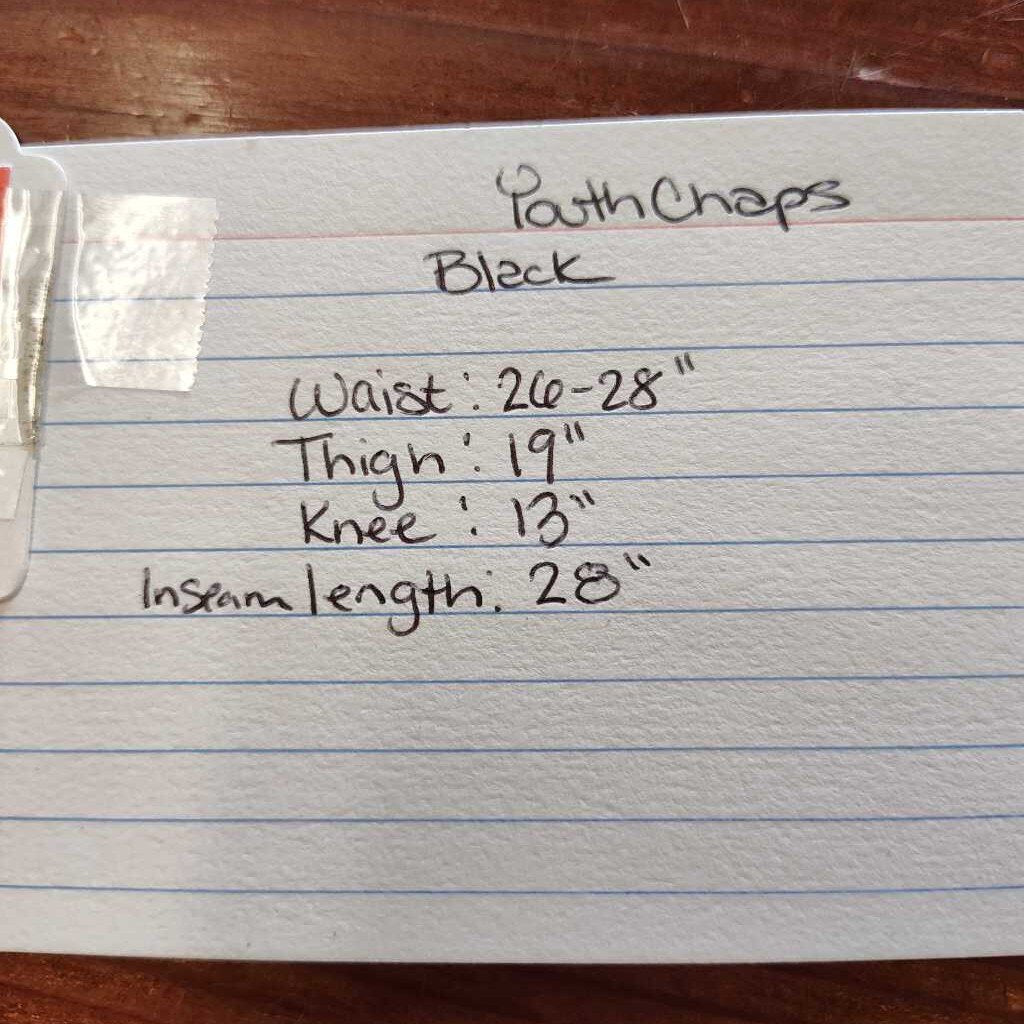 Youth Chaps
Black
Waist: 26-28"
Thigh: 19"
Knee: 13"
Inseam length: 28"